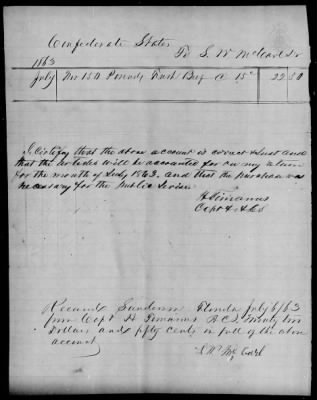 Confederate States
To S. W. McCarl Dr
1863
July For 150 Pounds Fresh Beef @ 15c 22 50
I Certify that the above account is correct & Just and
that the articles will be accounted for on my return
for the month of July 1863. and that the purchase was
necessary for the Public Service
H Timanus
Capt & ACS
Received Sanderson Florida July 6/63
from Capt H Timanus A.C.S. Twenty two
Dollars and fifty cents in full of the above
account
S. W. McCarl